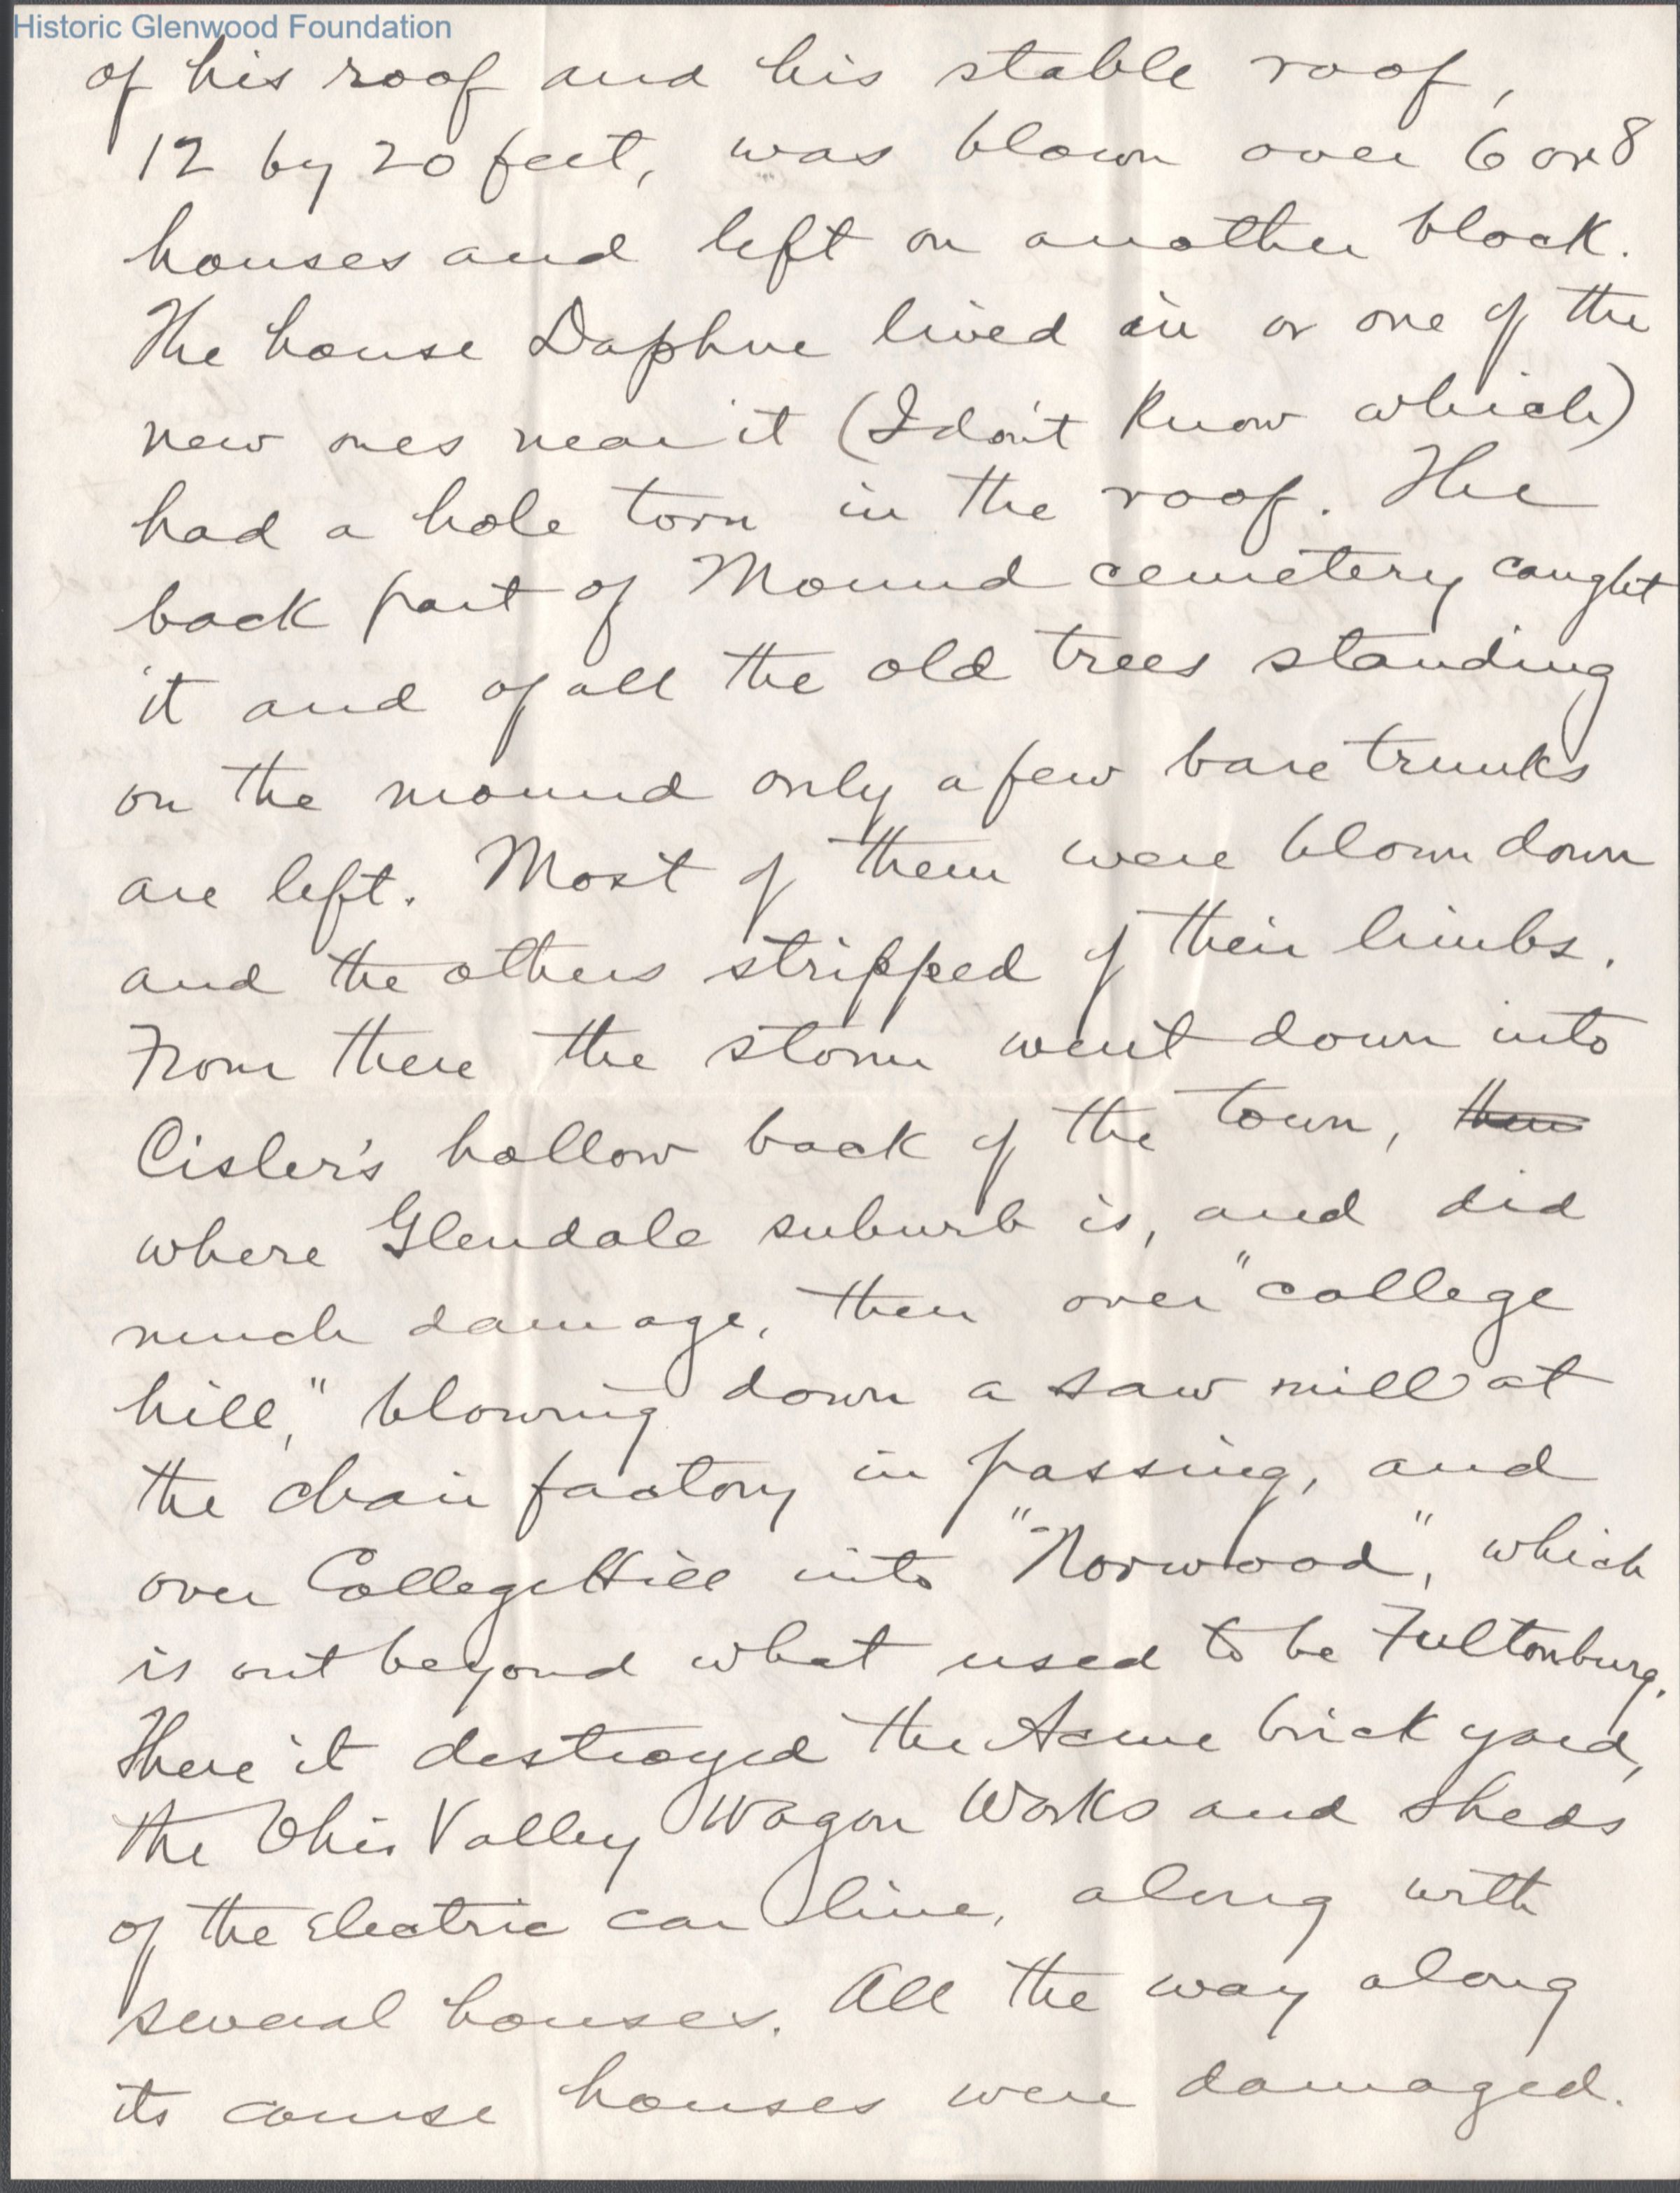 Historic Glenwood Foundation
of his roof and his stable roof,
12 by 20 feet, was blown over 6 or 8
houses and left on another block.
The house Daphne lived in or one of the
new ones near it (I don't know which)
had a hole torn in the roof. The
back part of Mound cemetery caught
it and of all the old trees standing
on the mound only a few bare trunks
are left. Most of them were blown down
and the others stripped of their limbs.
From there the storm went down into
Cisler's hollow back of the town, then
where Glendale suburb is, and did
much damage, then over "college
hill," blowing down a saw mill at
the chair factory in passing, and
over College Hill into "Norwood", which
is out beyond what used to be Fultonburg.
There it destroyed the Acme brick yard,
the Ohio Valley Wagon Works and sheds
of the Electric car line, along with
several houses. All the way along
its course houses were damaged.